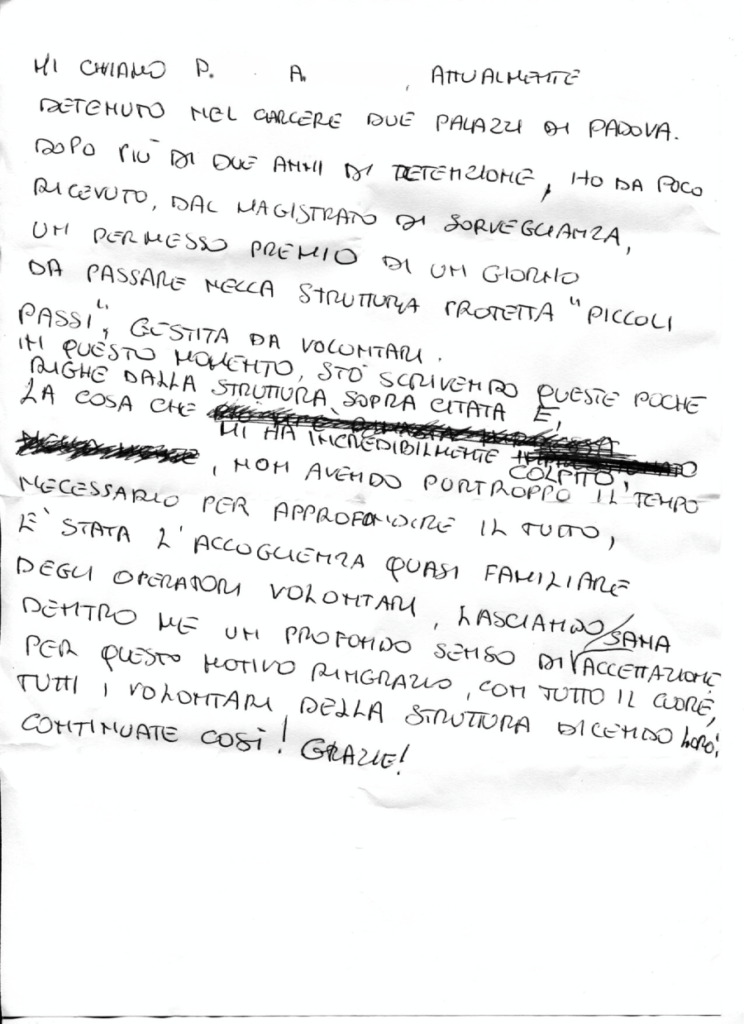 MI CHIAMO P. A. , ATTUALMENTE
DETENUTO NEL CARCERE DUE PALAZZI DI PADOVA.
DOPO PIÙ DI DUE ANNI DI DETENZIONE, HO DA POCO
RICEVUTO, DAL MAGISTRATO DI SORVEGLIANZA,
UN PERMESSO PREMIO DI UN GIORNO
DA PASSARE NELLA STRUTTURA PROTETTA "PICCOLI
PASSI", GESTITA DA VOLONTARI.
IN QUESTO MOMENTO, STÒ SCRIVENDO QUESTE POCHE
RIGHE DALLA STRUTTURA SOPRA CITATA E,
LA COSA CHE
MI HA INCREDIBILMENTE
COLPITO,
, NON AVENDO PURTROPPO IL TEMPO
NECESSARIO PER APPROFONDIRE IL TUTTO,
E' STATA L'ACCOGLIENZA QUASI FAMILIARE
DEGLI OPERATORI VOLONTARI, LASCIANDO
DENTRO ME UN PROFONDO SENSO DI SANA ACCETTAZIONE
PER QUESTO MOTIVO RINGRAZIO, CON TUTTO IL CUORE,
TUTTI I VOLONTARI DELLA STRUTTURA DICENDO LORO;
CONTINUATE COSÌ! GRAZIE!